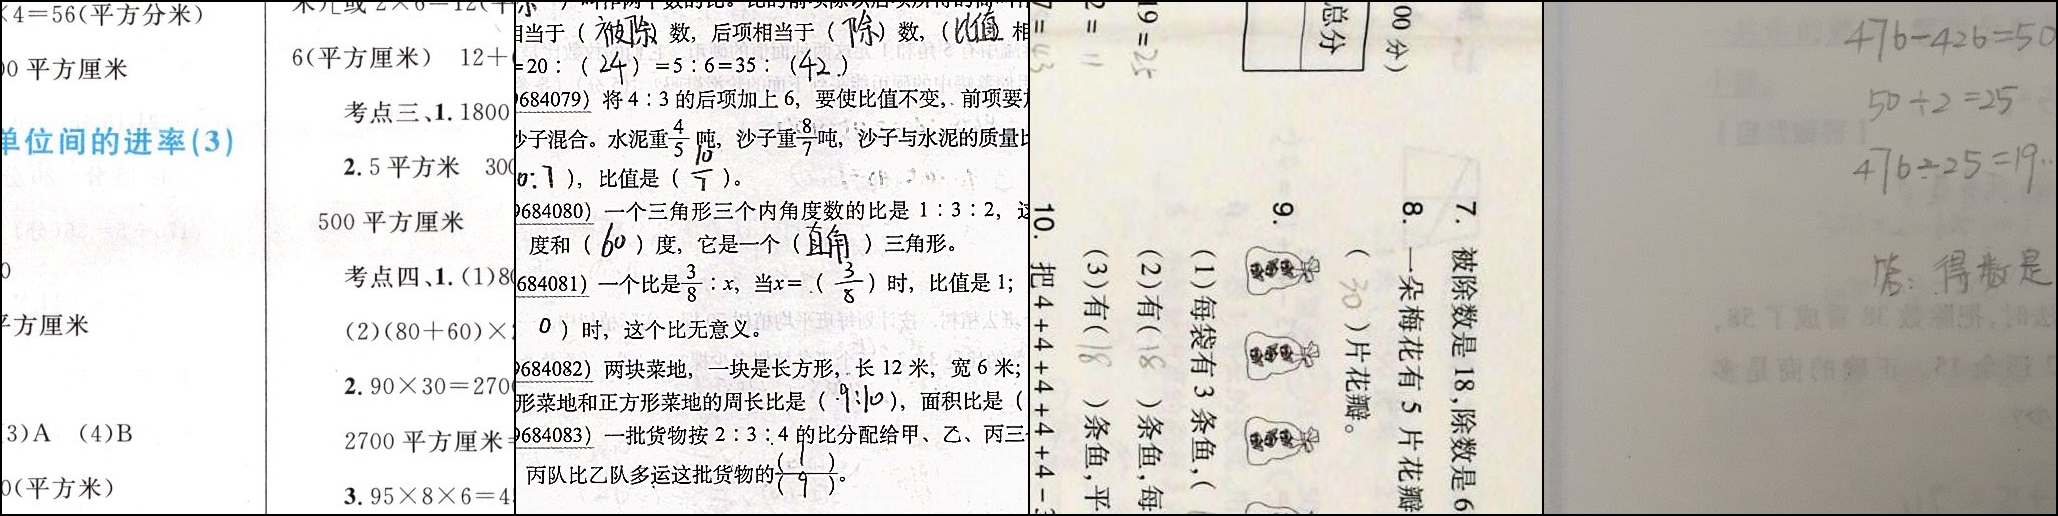 ×4=56(平方分米)
00平方厘米
单位间的进率(3)
平方厘米
3)A (4)B
0(平方米)
6(平方厘米) 12+
考点三、1.1800
2.5平方米 300
500平方厘米
考点四、1.(1)80
(2)(80+60)×
2.90×30=2700
2700平方厘米=
3.95×8×6=4
相当于(被除)数，后项相当于(除)数，(比值 相
=20：(24)=5：6=35：(42)
9684079) 将4：3的后项加上6，要使比值不变，前项要加
沙子混合。水泥重4/5吨，沙子重8/7吨，沙子与水泥的质量比
0:7)，比值是(10/7)。
9684080) 一个三角形三个内角度数的比是1：3：2，这
度和(60)度，它是一个(直角)三角形。
684081) 一个比是3/8：x，当x=(3/8)时，比值是1；
0)时，这个比无意义。
9684082) 两块菜地，一块是长方形，长12米，宽6米；
形菜地和正方形菜地的周长比是(9:10)，面积比是(
9684083) 一批货物按2：3：4的比分配给甲、乙、丙三
丙队比乙队多运这批货物的(1)/(9)。
00分)
总分
19=25
2=11
7=43
7. 被除数是18,除数是6
8. 一朵梅花有5片花瓣
(30)片花瓣。
9.
(1)每袋有3条鱼,(
(2)有(18)条鱼,每
(3)有(18)条鱼,平
10. 把4+4+4+4+4+4-3
476-426=50
50÷2=25
476÷25=19··
答：得数是